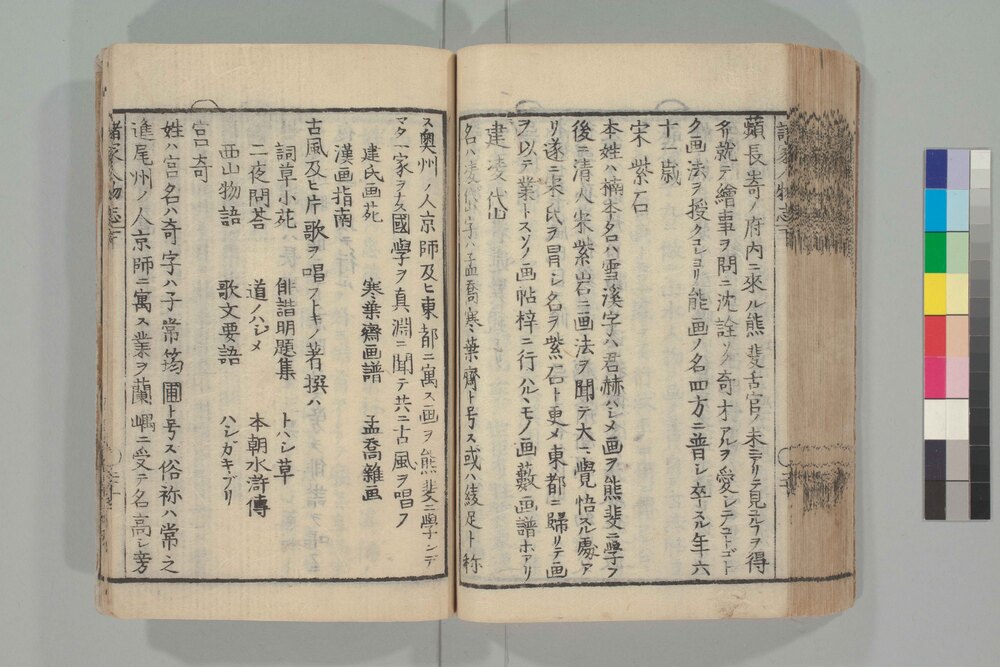 蘋長崎ノ府内ニ來ル熊斐舌官ノ末ニアリテ見ユルヿヲ得
希就テ繪事ヲ問ニ沈詮ソノ奇才アルヲ愛シテコト〴〵
ク画法ヲ授クコレヨリ能画ノ名四方ニ普シ卒スル年六
十一歳
宋紫石
本姓ハ楠本名ハ雪溪字ハ君赫ハシメ画ヲ熊斐ニ學フ
後ニ清人宋紫岩ニ画法ヲ聞テ大ニ覺悟スル處ア
リ遂ニ宋氏ヲ冒シ名ヲ紫石ト更メ東都ニ歸リテ画
ヲ以テ業トスソノ画帖梓ニ行ハルヽモノ画藪画譜ホアリ
建凌岱
名ハ凌岱字ハ孟喬寒葉齋ト号ス或ハ綾足ト称
ス奥州ノ人京師及ヒ東都ニ寓ス画ヲ熊斐ニ學ンデ
マタ一家ヲナス國學ヲ真淵ニ聞テ共ニ古風ヲ唱フ
建氏画苑 寒葉齋画譜 孟喬雜画
漢画指南
古風及ヒ片歌ヲ唱フトキ著撰ハ
詞草小苑 俳諧明題集 トハシ草
二夜問荅 道ノハシメ 本朝水滸傳
西山物語 歌文要語 ハシガキブリ
宮奇
姓ハ宮名ハ奇字ハ子常筠圃ト号ス俗称ハ常之
進尾州ノ人京師ニ寓ス業ヲ蘭嵎ニ受テ名高シ旁
諸家人物志下